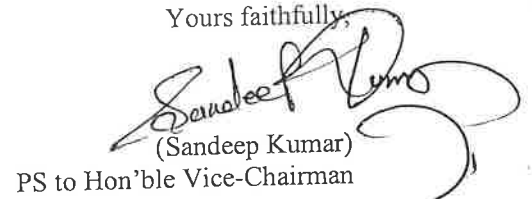 Yours faithfully,
Sandeep Kumar
(Sandeep Kumar)
PS to Hon'ble Vice-Chairman